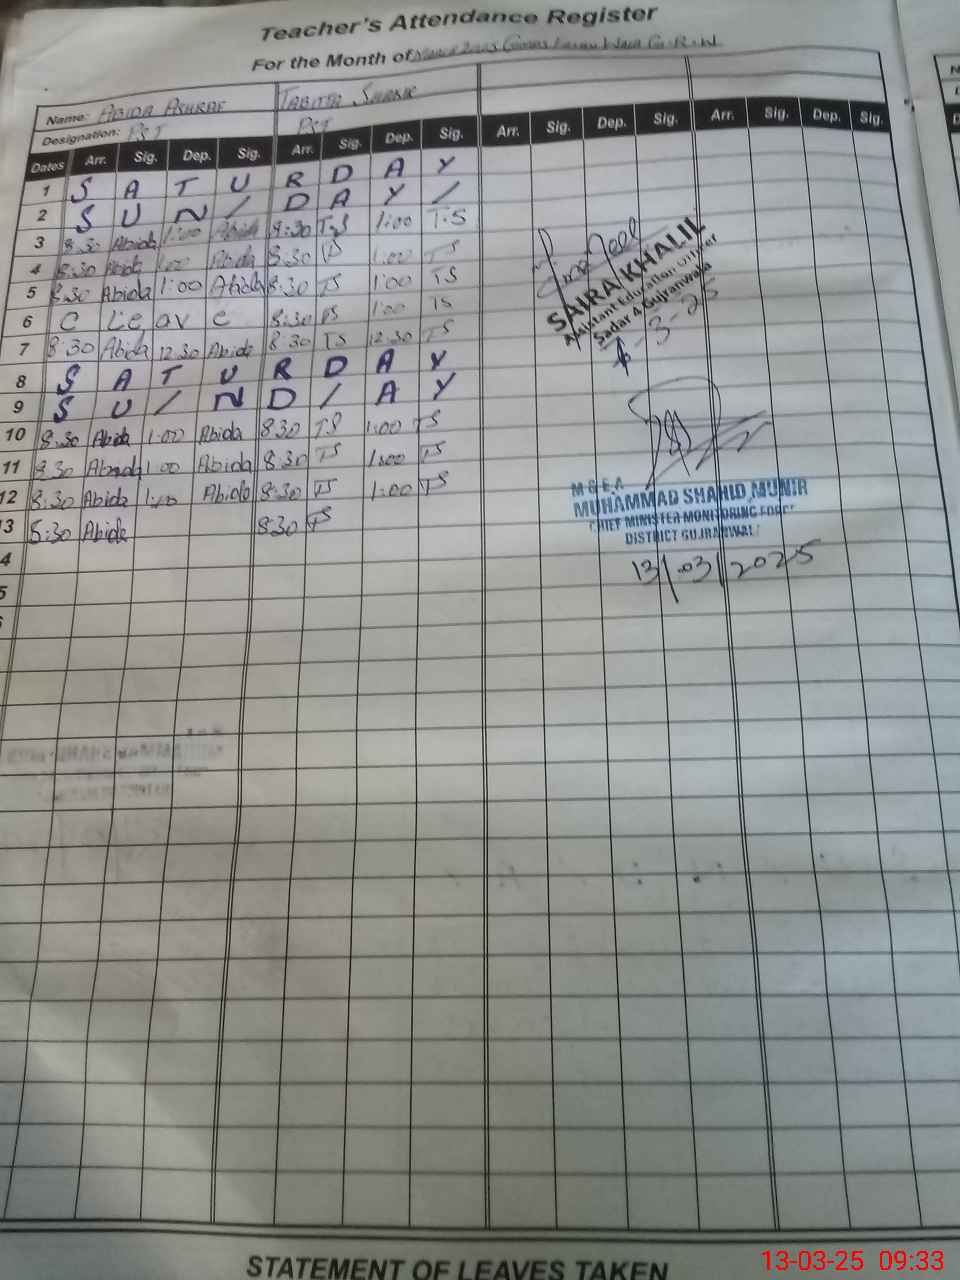 Teacher's Attendance Register
For the Month of March 2025
Name: ABIDA ASHRAF TABITA SHAKIR
Designation: PST PST
Dates Arr. Sig. Dep. Sig. Arr. Sig. Dep. Sig. Arr. Sig. Dep. Sig. Arr. Sig. Dep. Sig.
1 S A T U R D A Y
2 S U N / D A Y /
3 8:30 Abida 1:00 Abida 8:30 T.S 1:00 T.S
4 8:30 Abida 1:00 Abida 8:30 TS 1:00 TS
5 8:30 Abida 1:00 Abida 8:30 TS 1:00 TS
6 C Leave 8:30 TS 1:00 TS
7 8:30 Abida 12:30 Abida 8:30 TS 12:30 TS
8 S A T U R D A Y
9 S U / N D / A Y
10 8:30 Abida 1:00 Abida 8:30 TS 1:00 TS
11 8:30 Abida 1:00 Abida 8:30 TS 1:00 TS
12 8:30 Abida 1:00 Abida 8:30 TS 1:00 TS
13 8:30 Abida 8:30 TS
4
5
SAIRA KHALIL
Assistant Education Officer
Sadar 4 Gujranwala
-3-25
M & E.A
MUHAMMAD SHAHID MUNIR
CHIEF MINISTER MONITORING FORCE
DISTRICT GUJRANWALA
13/03/2025
STATEMENT OF LEAVES TAKEN
13-03-25 09:33